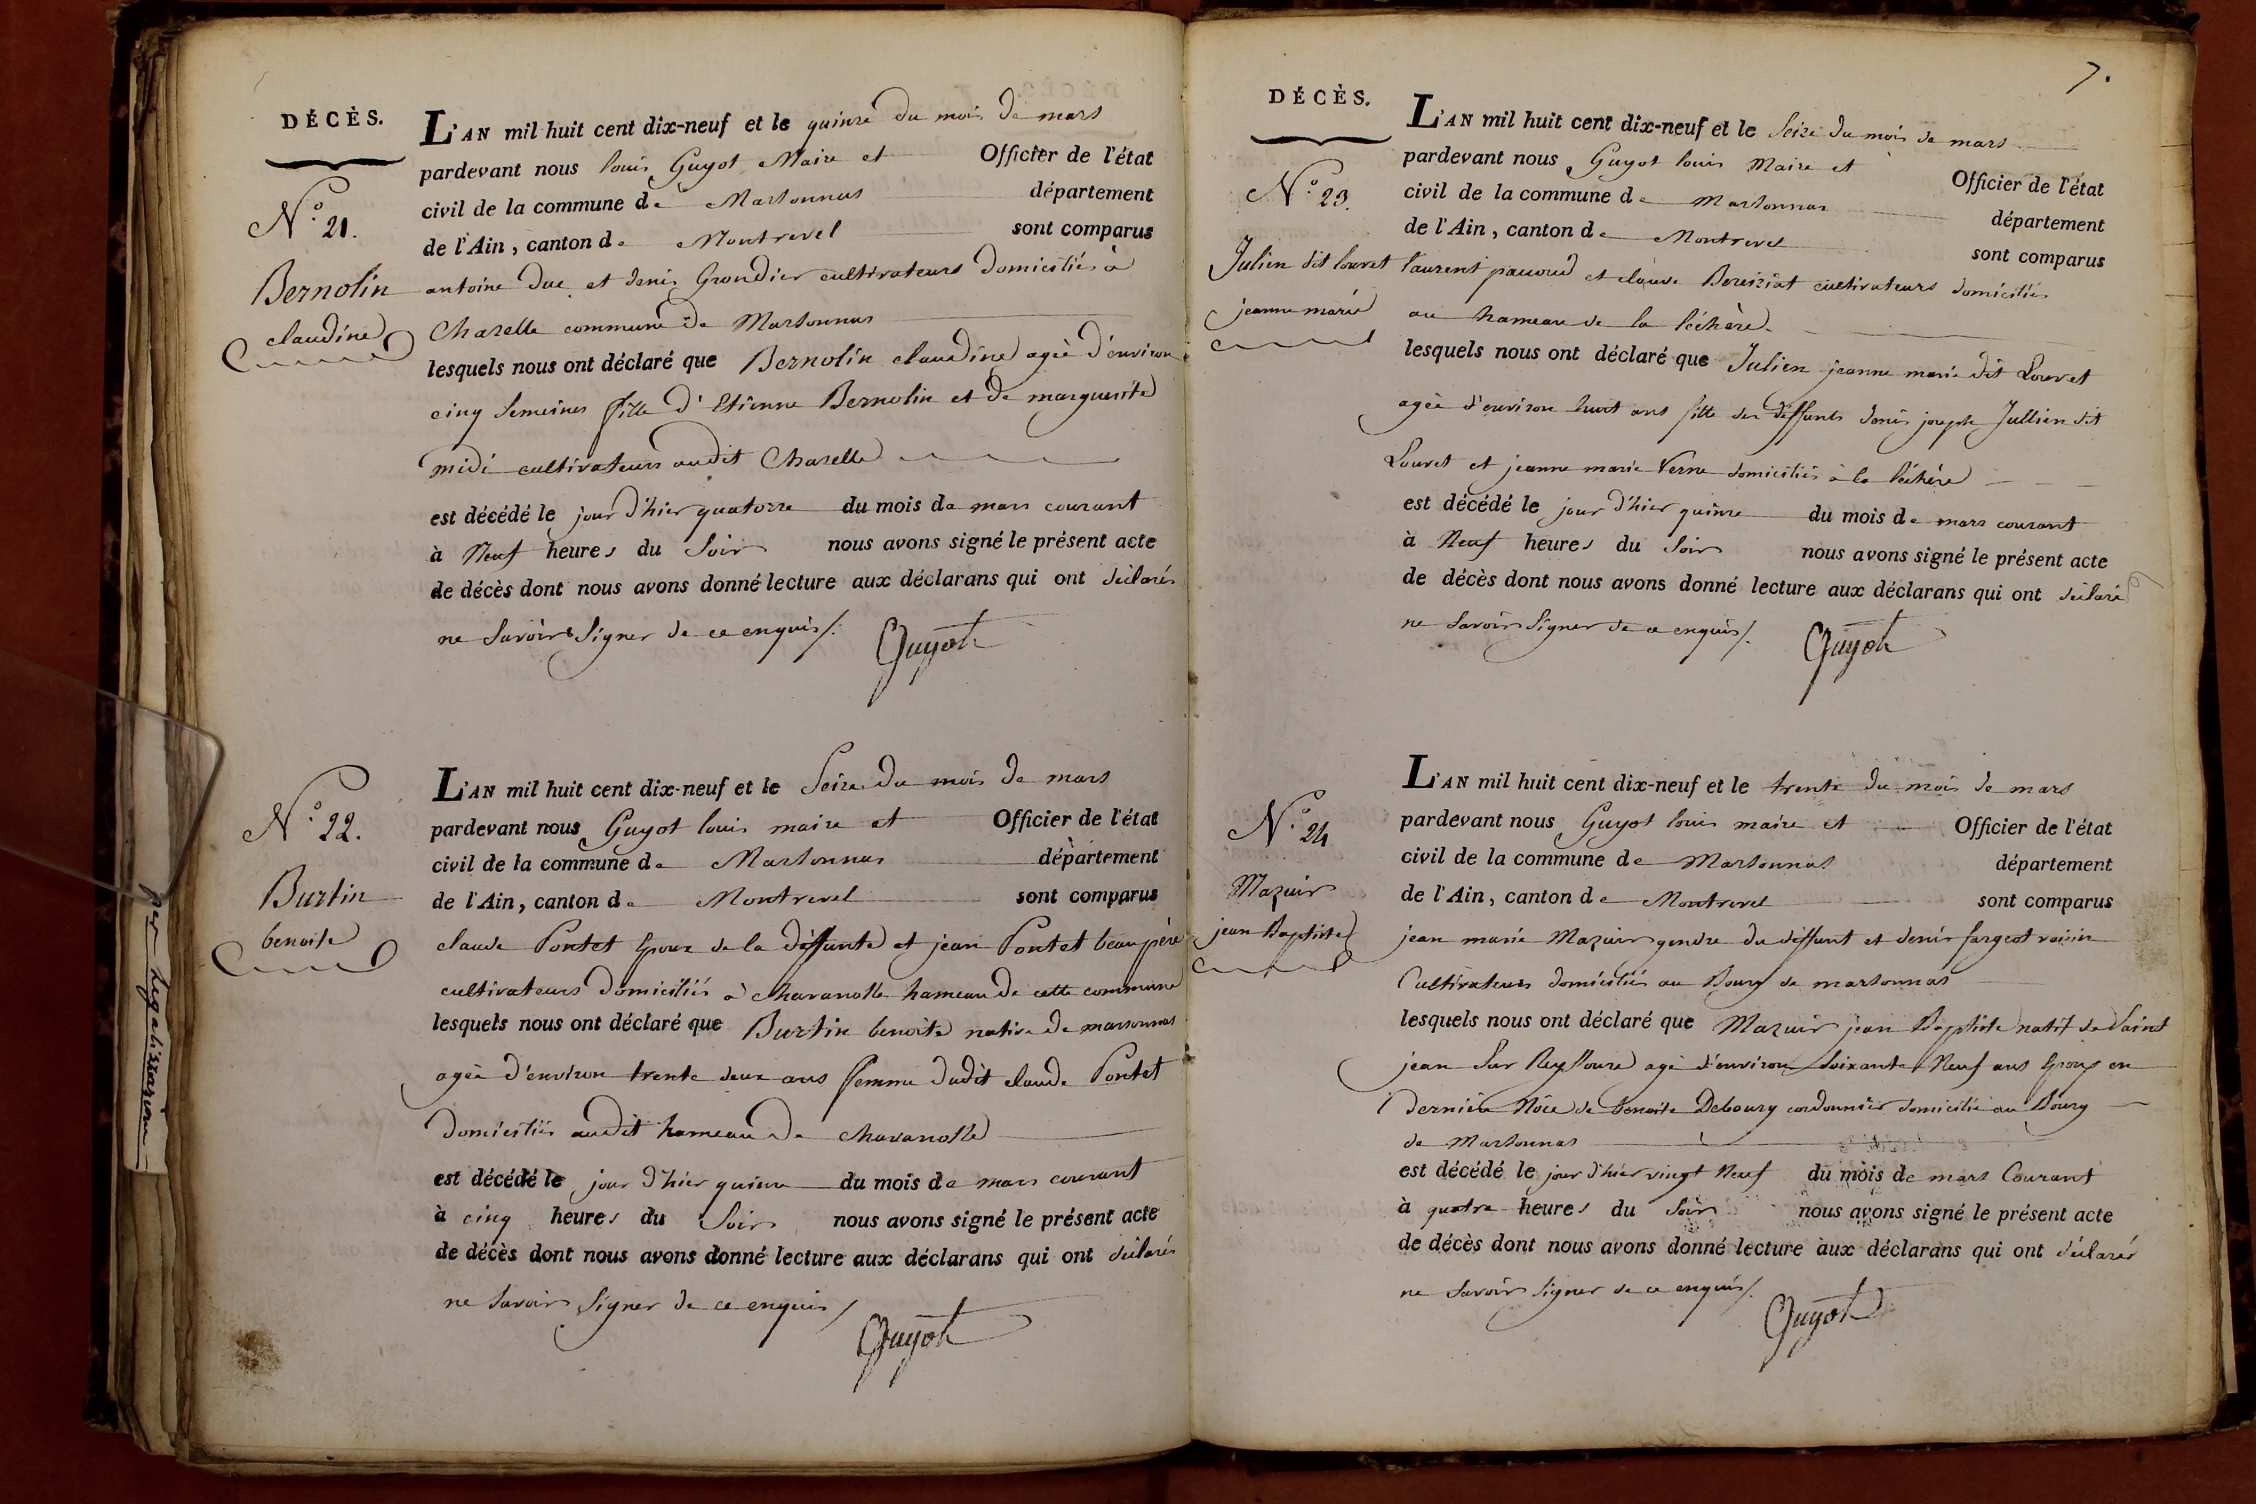 DÉCÈS.
N.o 21.
Bernolin
claudine
L'AN mil huit cent dix-neuf et le quinze du mois de mars
pardevant nous louis Guyot Maire et Officier de l'état
civil de la commune de Marsonnas département
de l'Ain, canton de Montrevel sont comparus
antoine Duc et denis Grondier cultivateurs domiciliés à
Chazelle commune de Marsonnas
lesquels nous ont déclaré que Bernolin claudine agée d'environ
cinq semeines fille d'Etienne Bernolin et de marguerite
midi cultivateurs audit Chazelle
est décédé le jour d'hier quatorze du mois de mars courant
à Neuf heures du Soir nous avons signé le présent acte
de décès dont nous avons donné lecture aux déclarans qui ont déclarés
ne Savoir Signer de ce enquis /.
Guyot
N.o 22.
Burtin
benoite
L'AN mil huit cent dix-neuf et le Seize du mois de mars
pardevant nous Guyot louis maire et Officier de l'état
civil de la commune de Marsonnas département
de l'Ain, canton de Montrevel sont comparus
claude Pontet Epoux de la déffunte et jean Pontet beau père
cultivateurs domiciliés à chavanolle hameau de cette commune
lesquels nous ont déclaré que Burtin benoite native de marsonnas
agée d'environ trente deux ans femme dudit claude Pontet
domiciliés audit hameau de chavanolle
est décédé le jour d'hier quinze du mois de mars courant
à cinq heures du Soir nous avons signé le présent acte
de décès dont nous avons donné lecture aux déclarans qui ont déclarés
ne Savoir Signer de ce enquis /
Guyot
7.
DÉCÈS.
N.o 23.
Julien dit louvet
jeanne marie
L'AN mil huit cent dix-neuf et le Seize du mois de mars
pardevant nous Guyot louis Maire et Officier de l'état
civil de la commune de Marsonnas département
de l'Ain, canton de Montrevel sont comparus
laurent pacoud et claude Bereiziat cultivateurs domiciliés
au hameau de la léchère
lesquels nous ont déclaré que Julien jeanne marie dit Louvet
agée d'environ huit ans fille des déffunts denis joseph Jullien dit
Louvet et jeanne marie Verne domiciliés à la léchère
est décédé le jour d'hier quinze du mois de mars courant
à Neuf heures du Soir nous avons signé le présent acte
de décès dont nous avons donné lecture aux déclarans qui ont déclaré
ne Savoir Signer de ce enquis /.
Guyot
N.o 24
Mazuir
jean Baptiste
L'AN mil huit cent dix-neuf et le trente du mois de mars
pardevant nous Guyot louis maire et Officier de l'état
civil de la commune de Marsonnas département
de l'Ain, canton de Montrevel sont comparus
jean marie Mazuir gendre du déffunt et denis fargeot voisin
Cultivateurs domiciliés au Bourg de marsonnas
lesquels nous ont déclaré que Mazuir jean Baptiste natif de Saint
jean Sur Reyssouze agé d'environ Soixante Neuf ans Epoux en
dernière Nôce de benoite Debourg cordonnier domicilié au Bourg
de Marsonnas
est décédé le jour d'hier vingt Neuf du mois de mars Courant
à quatre heures du Soir nous avons signé le présent acte
de décès dont nous avons donné lecture aux déclarans qui ont déclarés
ne Savoir Signer de ce enquis /.
Guyot